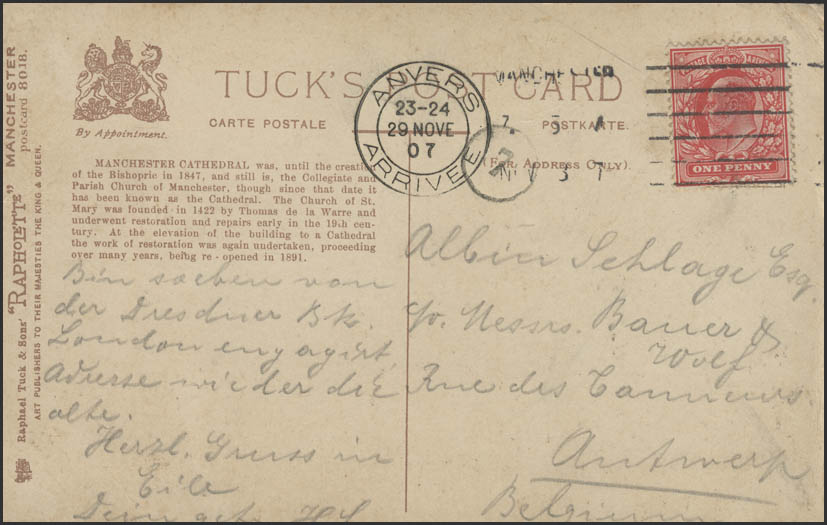 TUCK'S POST CARD
CARTE POSTALE
POSTKARTE.
(FOR ADDRESS ONLY).
By Appointment.
MANCHESTER CATHEDRAL was, until the creation
of the Bishopric in 1847, and still is, the Collegiate and
Parish Church of Manchester, though since that date it
has been known as the Cathedral. The Church of St.
Mary was founded in 1422 by Thomas de la Warre and
underwent restoration and repairs early in the 19th cen-
tury. At the elevation of the building to a Cathedral
the work of restoration was again undertaken, proceeding
over many years, being re-opened in 1891.
Bin soeben von
der Dresdner Bk.
London engagirt,
Adresse wieder die
alte.
Herzl. Gruss in
Eile
Dein
Albin Schlage Esq.
c/o. Messrs. Bauer &
Wolf
Rue des
Antwerp
Belgium
Raphael Tuck & Sons' "RAPHOLETTE" MANCHESTER
postcard 8018.
ART PUBLISHERS TO THEIR MAJESTIES THE KING & QUEEN.
ANVERS
23-24
29 NOVE
07
ARRIVEE
MANCHESTER
ONE PENNY